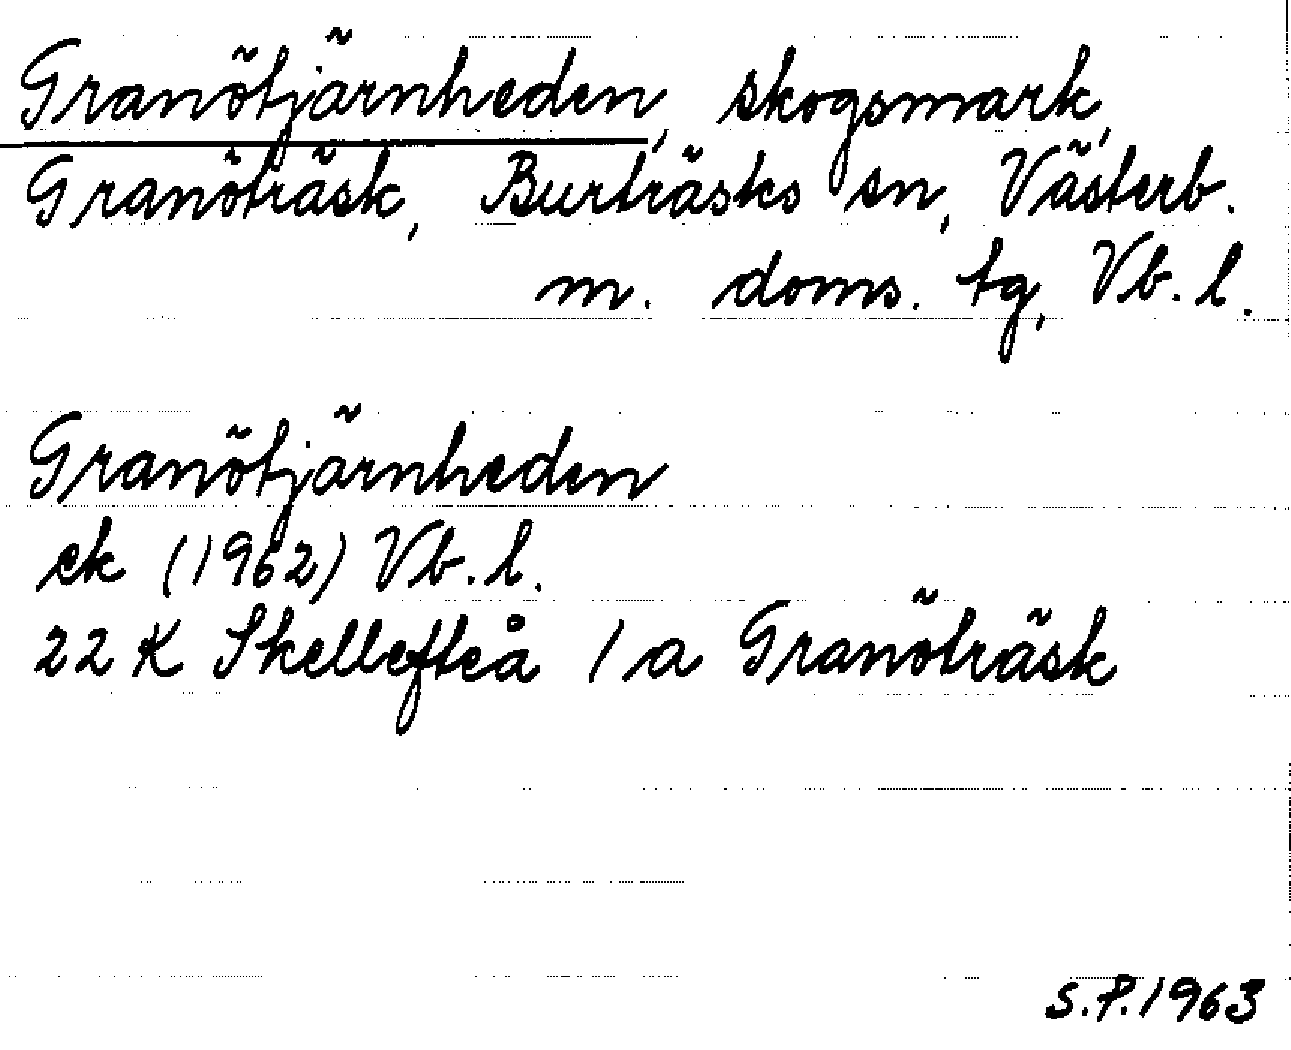 Granötjärnheden, skogsmark,
Granöträsk, Burträsks sn, Västerb.
m. doms. tg, Vb. l.
Granötjärnheden
ek (1962) Vb. l.
22 K Skellefteå 1 a Granöträsk
S.P. 1963